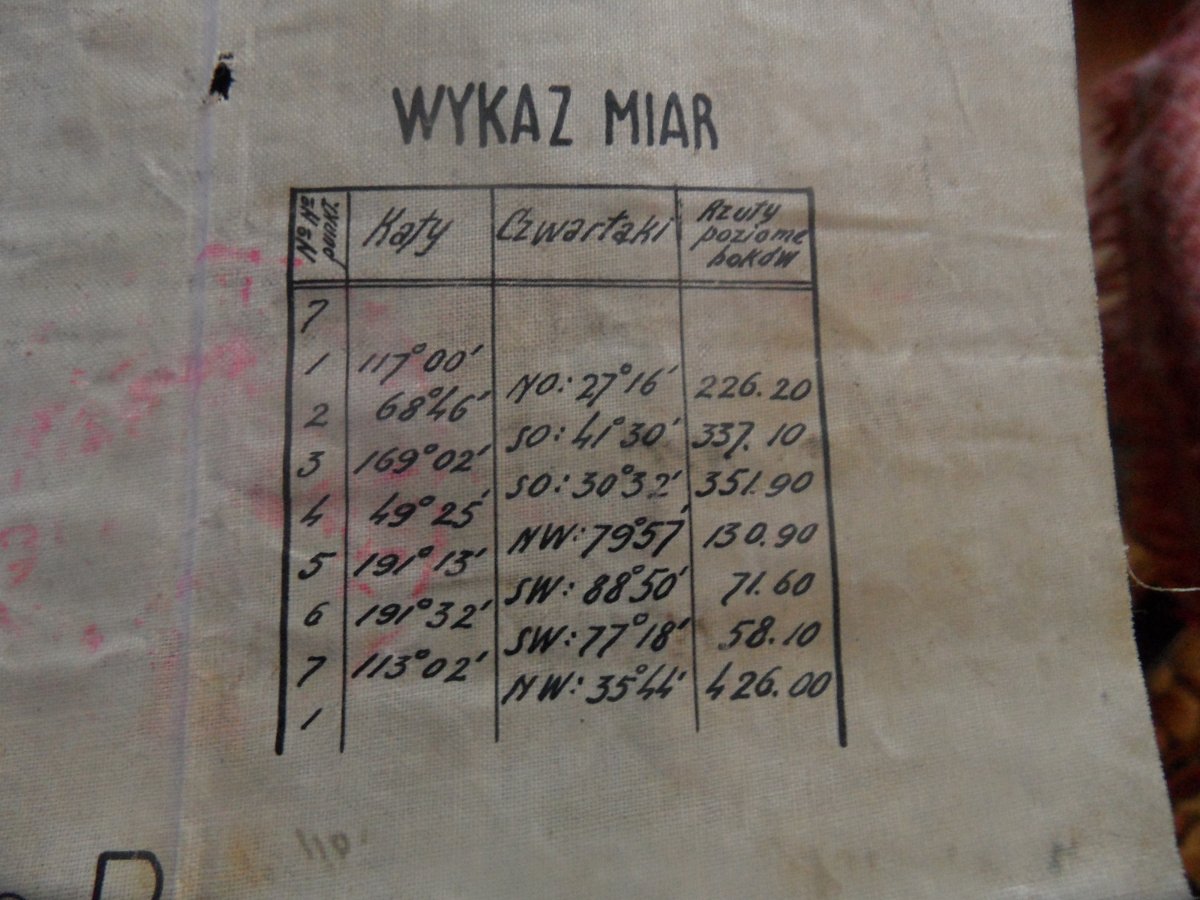 WYKAZ MIAR
№№ punkt. Kąty Czwartaki Rzuty poziome boków
7
1 117°00'
NO: 27°16' 226.20
2 68°46'
SO: 41°30' 337.10
3 169°02'
SO: 30°32' 351.90
4 49°25'
NW: 79°57' 130.90
5 191°13'
SW: 88°50' 71.60
6 191°32'
SW: 77°18' 58.10
7 113°02'
NW: 35°44' 426.00
1